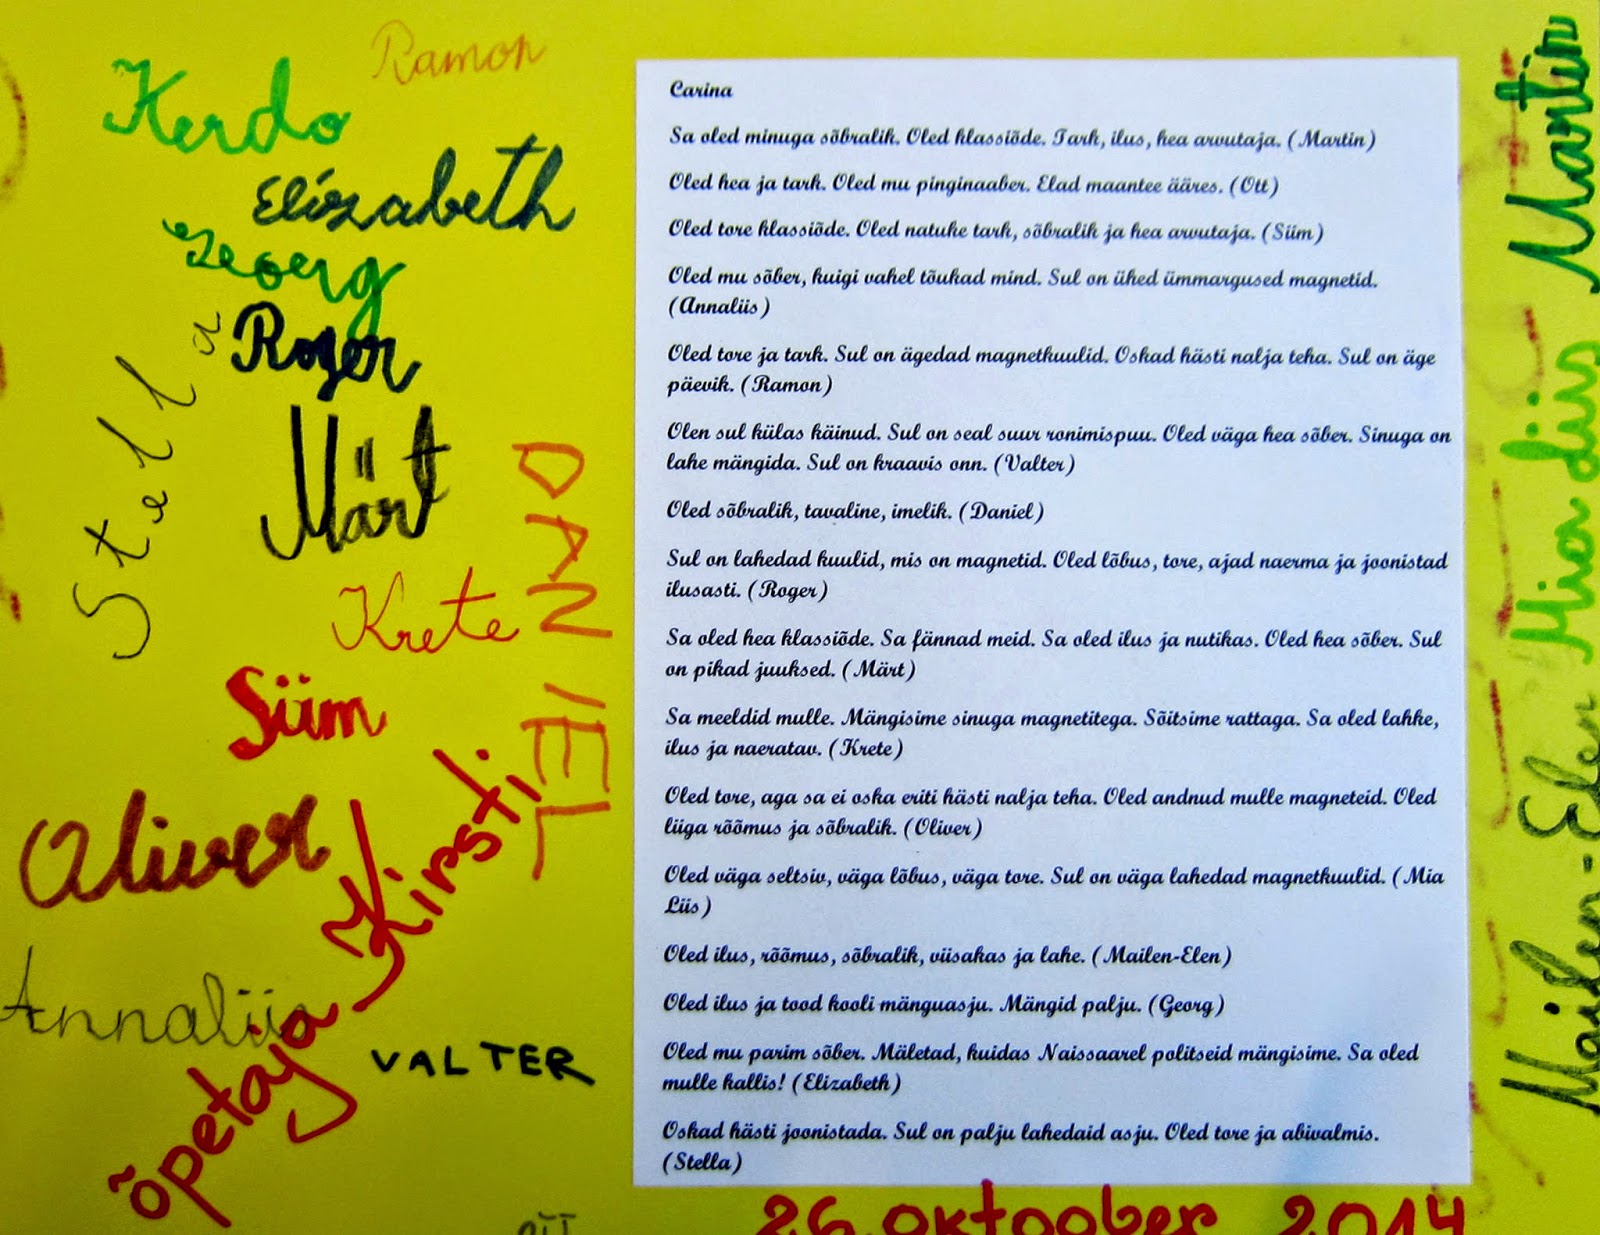 Ramon
Kerdo
Elizabeth
Georg
Roger
Stella
Märt
DANIEL
Krete
Siim
Oliver
Annaliis
õpetaja Kirsti
VALTER
Carina
Sa oled minuga sõbralik. Oled klassiõde. Tark, ilus, hea arvutaja. (Martin)
Oled hea ja tark. Oled mu pinginaaber. Elad maantee ääres. (Ott)
Oled tore klassiõde. Oled natuke tark, sõbralik ja hea arvutaja. (Siim)
Oled mu sõber, kuigi vahel tõukad mind. Sul on ühed ümmargused magnetid.
(Annaliis)
Oled tore ja tark. Sul on ägedad magnetkuulid. Oskad hästi nalja teha. Sul on äge
päevik. (Ramon)
Olen sul külas käinud. Sul on seal suur ronimispuu. Oled väga hea sõber. Sinuga on
lahe mängida. Sul on kraavis onn. (Valter)
Oled sõbralik, tavaline, imelik. (Daniel)
Sul on lahedad kuulid, mis on magnetid. Oled lõbus, tore, ajad naerma ja joonistad
ilusasti. (Roger)
Sa oled hea klassiõde. Sa fännad meid. Sa oled ilus ja nutikas. Oled hea sõber. Sul
on pikad juuksed. (Märt)
Sa meeldid mulle. Mängisime sinuga magnetitega. Sõitsime rattaga. Sa oled lahke,
ilus ja naeratav. (Krete)
Oled tore, aga sa ei oska eriti hästi nalja teha. Oled andnud mulle magneteid. Oled
liiga rõõmus ja sõbralik. (Oliver)
Oled väga seltsiv, väga lõbus, väga tore. Sul on väga lahedad magnetkuulid. (Mia
Liis)
Oled ilus, rõõmus, sõbralik, viisakas ja lahe. (Mailen-Elen)
Oled ilus ja tood kooli mänguasju. Mängid palju. (Georg)
Oled mu parim sõber. Mäletad, kuidas Naissaarel politseid mängisime. Sa oled
mulle kallis! (Elizabeth)
Oskad hästi joonistada. Sul on palju lahedaid asju. Oled tore ja abivalmis.
(Stella)
26. oktoober 2014
Martin
Mia Liis
Mailen-Elen